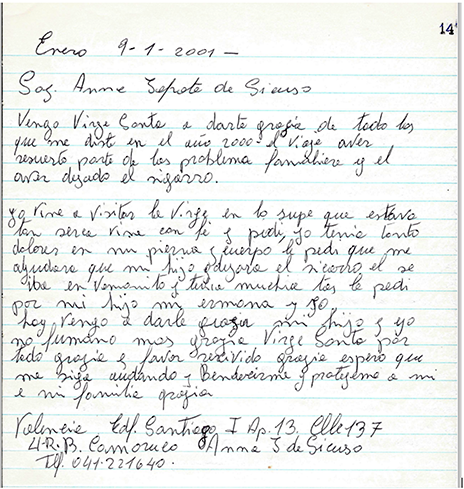 14
Enero 9-1-2001-
Soy Anna Zepote de Sicuso
Vengo Virge Santa a darte grazia de todo los
que me diste en el año 2000= el viaje aver
resuerto parte de los problema familiere y el
aver dejado el sigarro.
yo vine a visitar la Virge en lo supe que estava
tan serca vine con fé y pedi, yo tenia tanto
dolores en mi pierna y cuerpo le pedi que me
ayudara que mi hijo dejara el sicarro el se
iba en vomito y tenia mucha tos le pedi
por mi hijo mi ermana y yo
hoy vengo a darle grazia mi hijo y yo
no fumamo mas grazia Virge Santa por
todo grazia e favor recivido grazia espero que
me siga audando y Bendecirme y protegeme a mi
e mi familia grazia
Valencia Edf. Santiago I Ap. 13. Clle 137
U.R.B. Camoruco Anna S de Sicuso
Tlf. 041-221640.